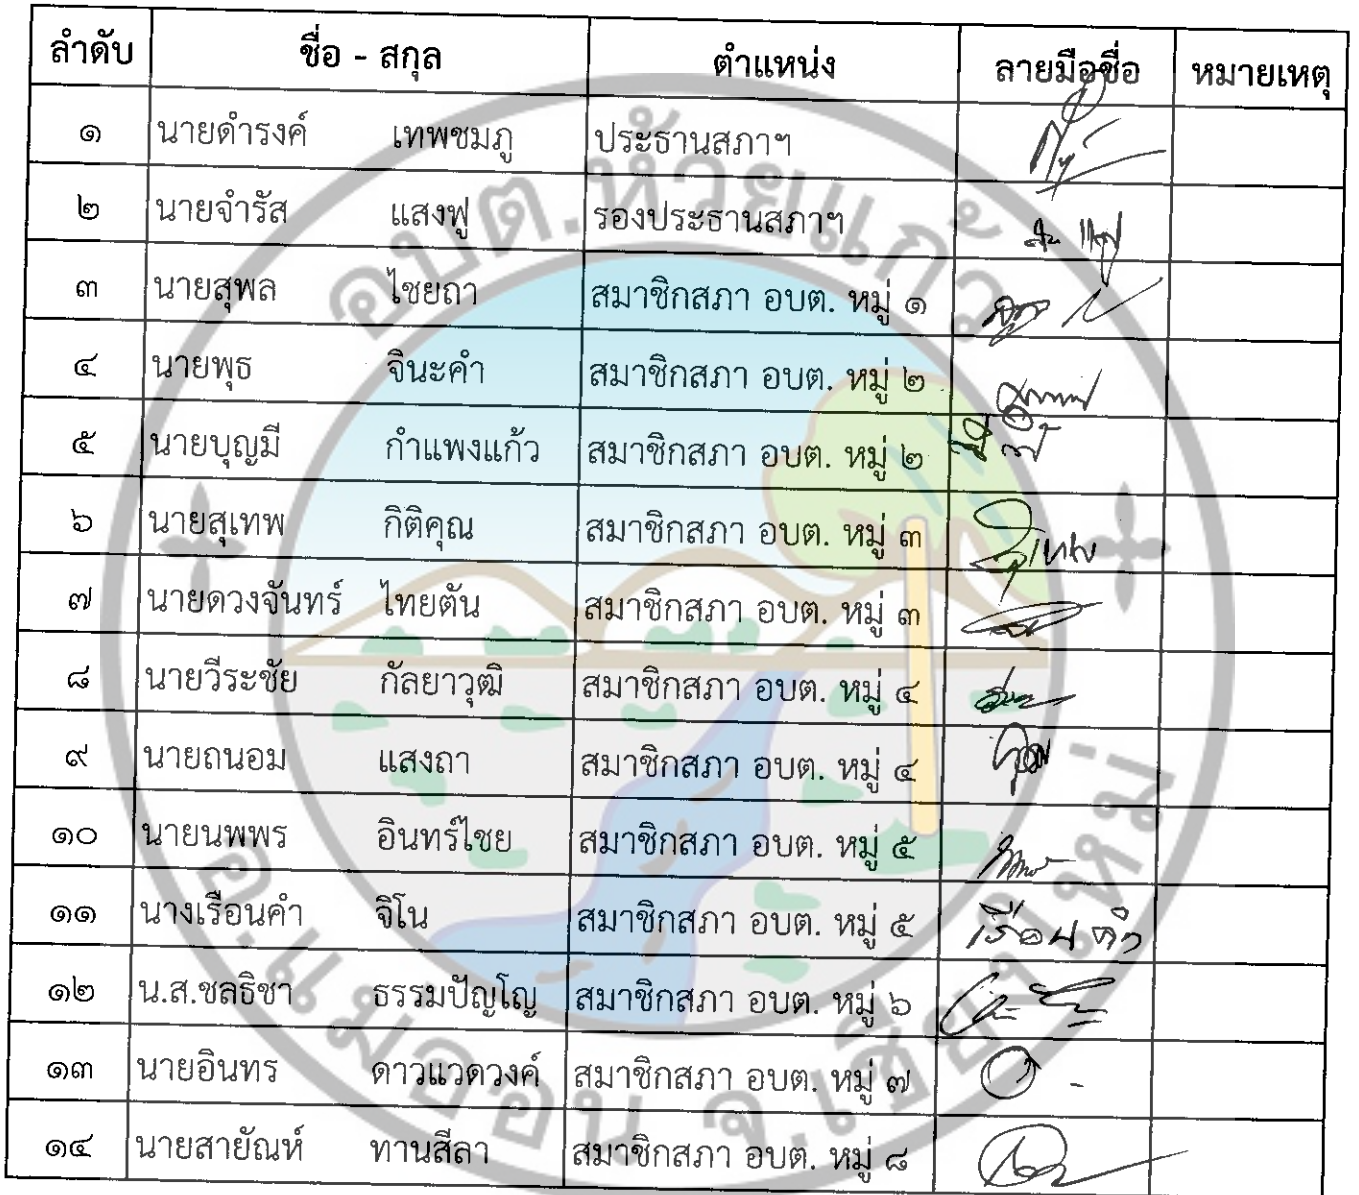 ลำดับ ชื่อ - สกุล ตำแหน่ง ลายมือชื่อ หมายเหตุ
๑ นายดำรงค์ เทพชมภู ประธานสภาฯ
๒ นายจำรัส แสงฟู รองประธานสภาฯ
๓ นายสุพล ไชยถา สมาชิกสภา อบต. หมู่ ๑
๔ นายพุธ จินะคำ สมาชิกสภา อบต. หมู่ ๒
๕ นายบุญมี กำแพงแก้ว สมาชิกสภา อบต. หมู่ ๒
๖ นายสุเทพ กิติคุณ สมาชิกสภา อบต. หมู่ ๓
๗ นายดวงจันทร์ ไทยตัน สมาชิกสภา อบต. หมู่ ๓
๘ นายวีระชัย กัลยาวุฒิ สมาชิกสภา อบต. หมู่ ๔
๙ นายถนอม แสงถา สมาชิกสภา อบต. หมู่ ๔
๑๐ นายนพพร อินทร์ไชย สมาชิกสภา อบต. หมู่ ๕
๑๑ นางเรือนคำ จิโน สมาชิกสภา อบต. หมู่ ๕ เรือนคำ
๑๒ น.ส.ชลธิชา ธรรมปัญโญ สมาชิกสภา อบต. หมู่ ๖
๑๓ นายอินทร ดาวแวดวงค์ สมาชิกสภา อบต. หมู่ ๗
๑๔ นายสายัณห์ ทานสีลา สมาชิกสภา อบต. หมู่ ๘
อบต.ห้วยแก้ว
อ.แม่ออน จ.เชียงใหม่